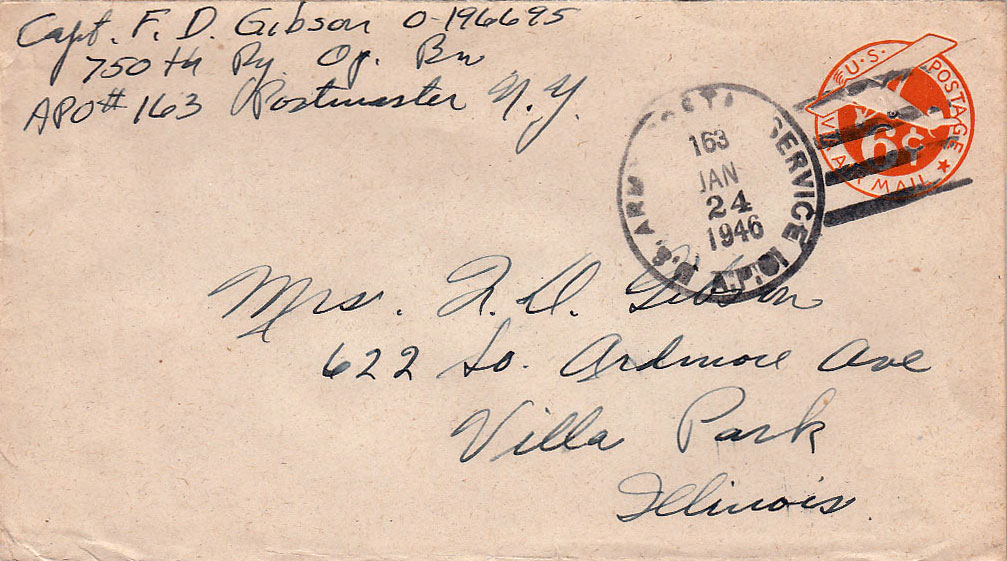 Capt. F. D. Gibson O-196695
750th Ry Op. Bn
APO# 163 Postmaster N.Y.
U.S. ARMY POSTAL SERVICE A.P.O.
163
JAN
24
1946
U.S. POSTAGE
6¢
AIR MAIL
Mrs. F. D. Gibson
622 So. Ardmore Ave
Villa Park
Illinois.